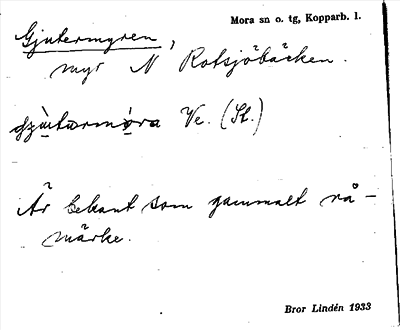 Mora sn o. tg, Kopparb. l.
Gjutermyren,
myr N Rotsjöbäcken.
Ve. (St.)
Är bekant som gammalt rå-
märke.
Bror Lindén 1933